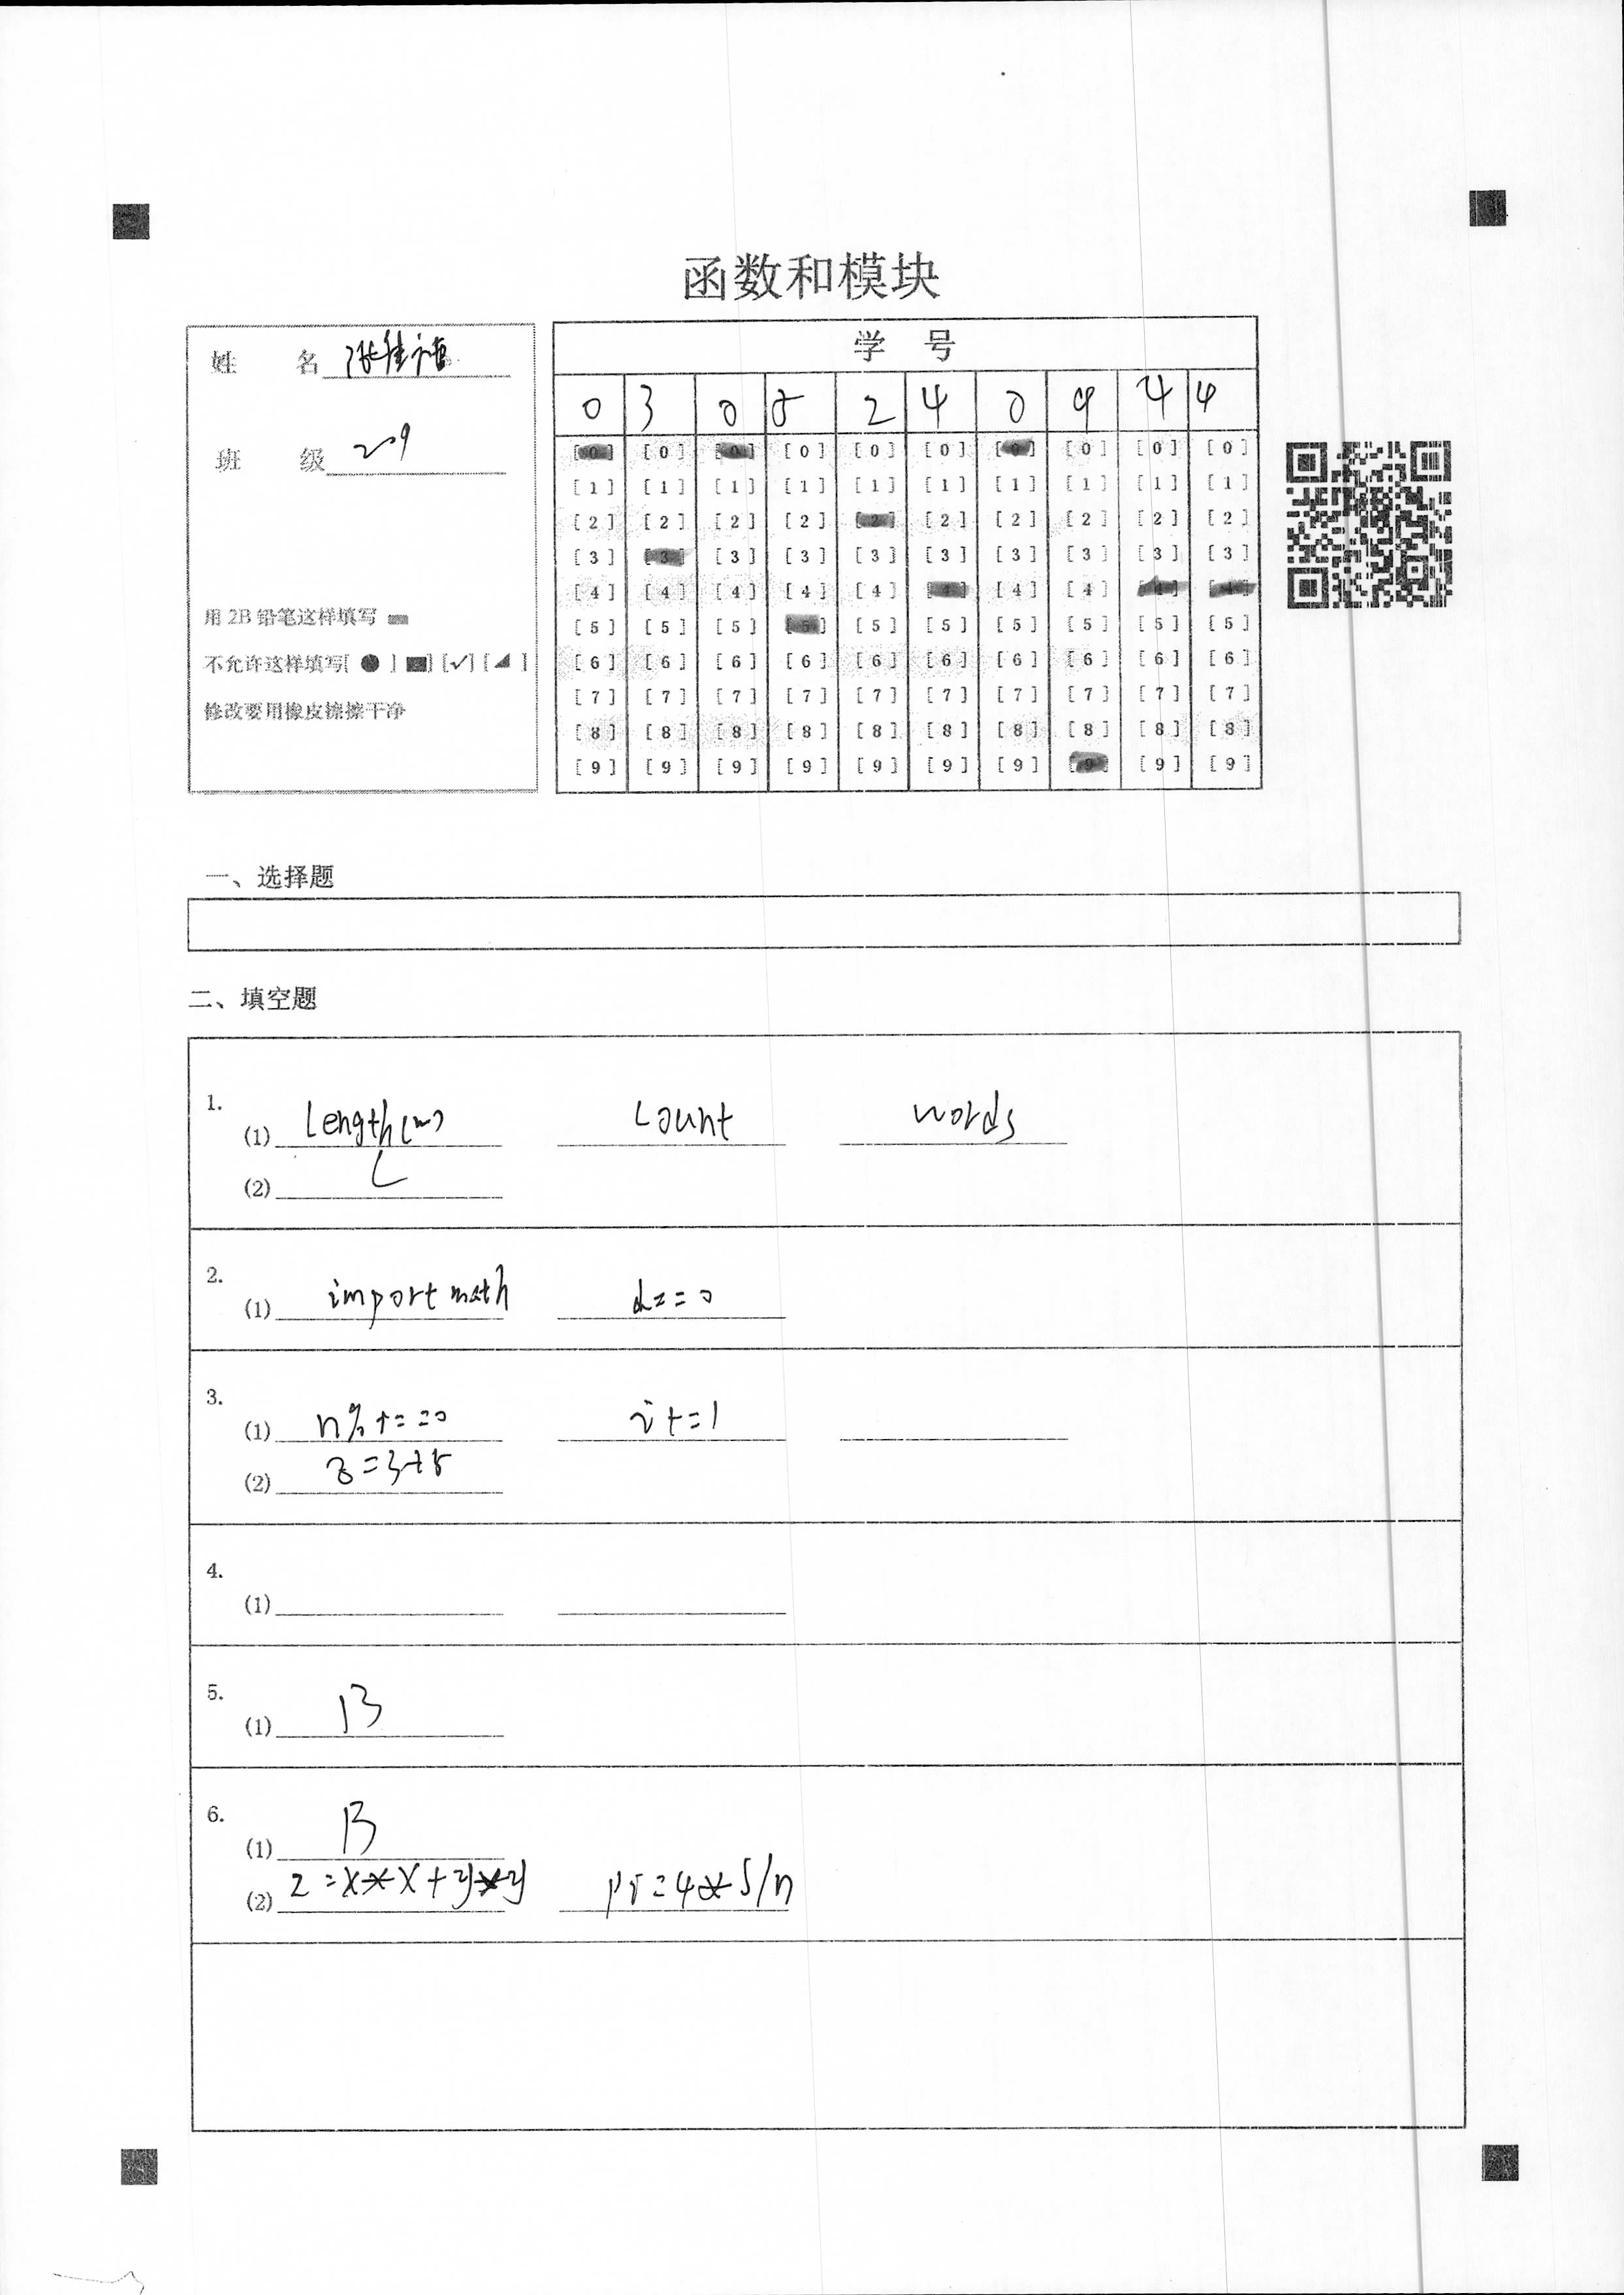 函数和模块
姓 名
班 级 209
用 2B 铅笔这样填写
不允许这样填写[ ● ] [■] [✓] [◢ ]
修改要用橡皮擦擦干净
学 号
0 3 0 5 2 4 0 9 4 4
[0] [0] [0] [0] [0] [0] [0] [0] [0] [0]
[1] [1] [1] [1] [1] [1] [1] [1] [1] [1]
[2] [2] [2] [2] [2] [2] [2] [2] [2] [2]
[3] [3] [3] [3] [3] [3] [3] [3] [3] [3]
[4] [4] [4] [4] [4] [4] [4] [4] [4] [4]
[5] [5] [5] [5] [5] [5] [5] [5] [5] [5]
[6] [6] [6] [6] [6] [6] [6] [6] [6] [6]
[7] [7] [7] [7] [7] [7] [7] [7] [7] [7]
[8] [8] [8] [8] [8] [8] [8] [8] [8] [8]
[9] [9] [9] [9] [9] [9] [9] [9] [9] [9]
一、选择题
二、填空题
1.
(1) length(w) count words
(2) C
2.
(1) import math d==0
3.
(1) i+=1
(2)
4.
(1)
5.
(1) B
6.
(1) B
(2) z=x*x+y*y pi=4*s/n